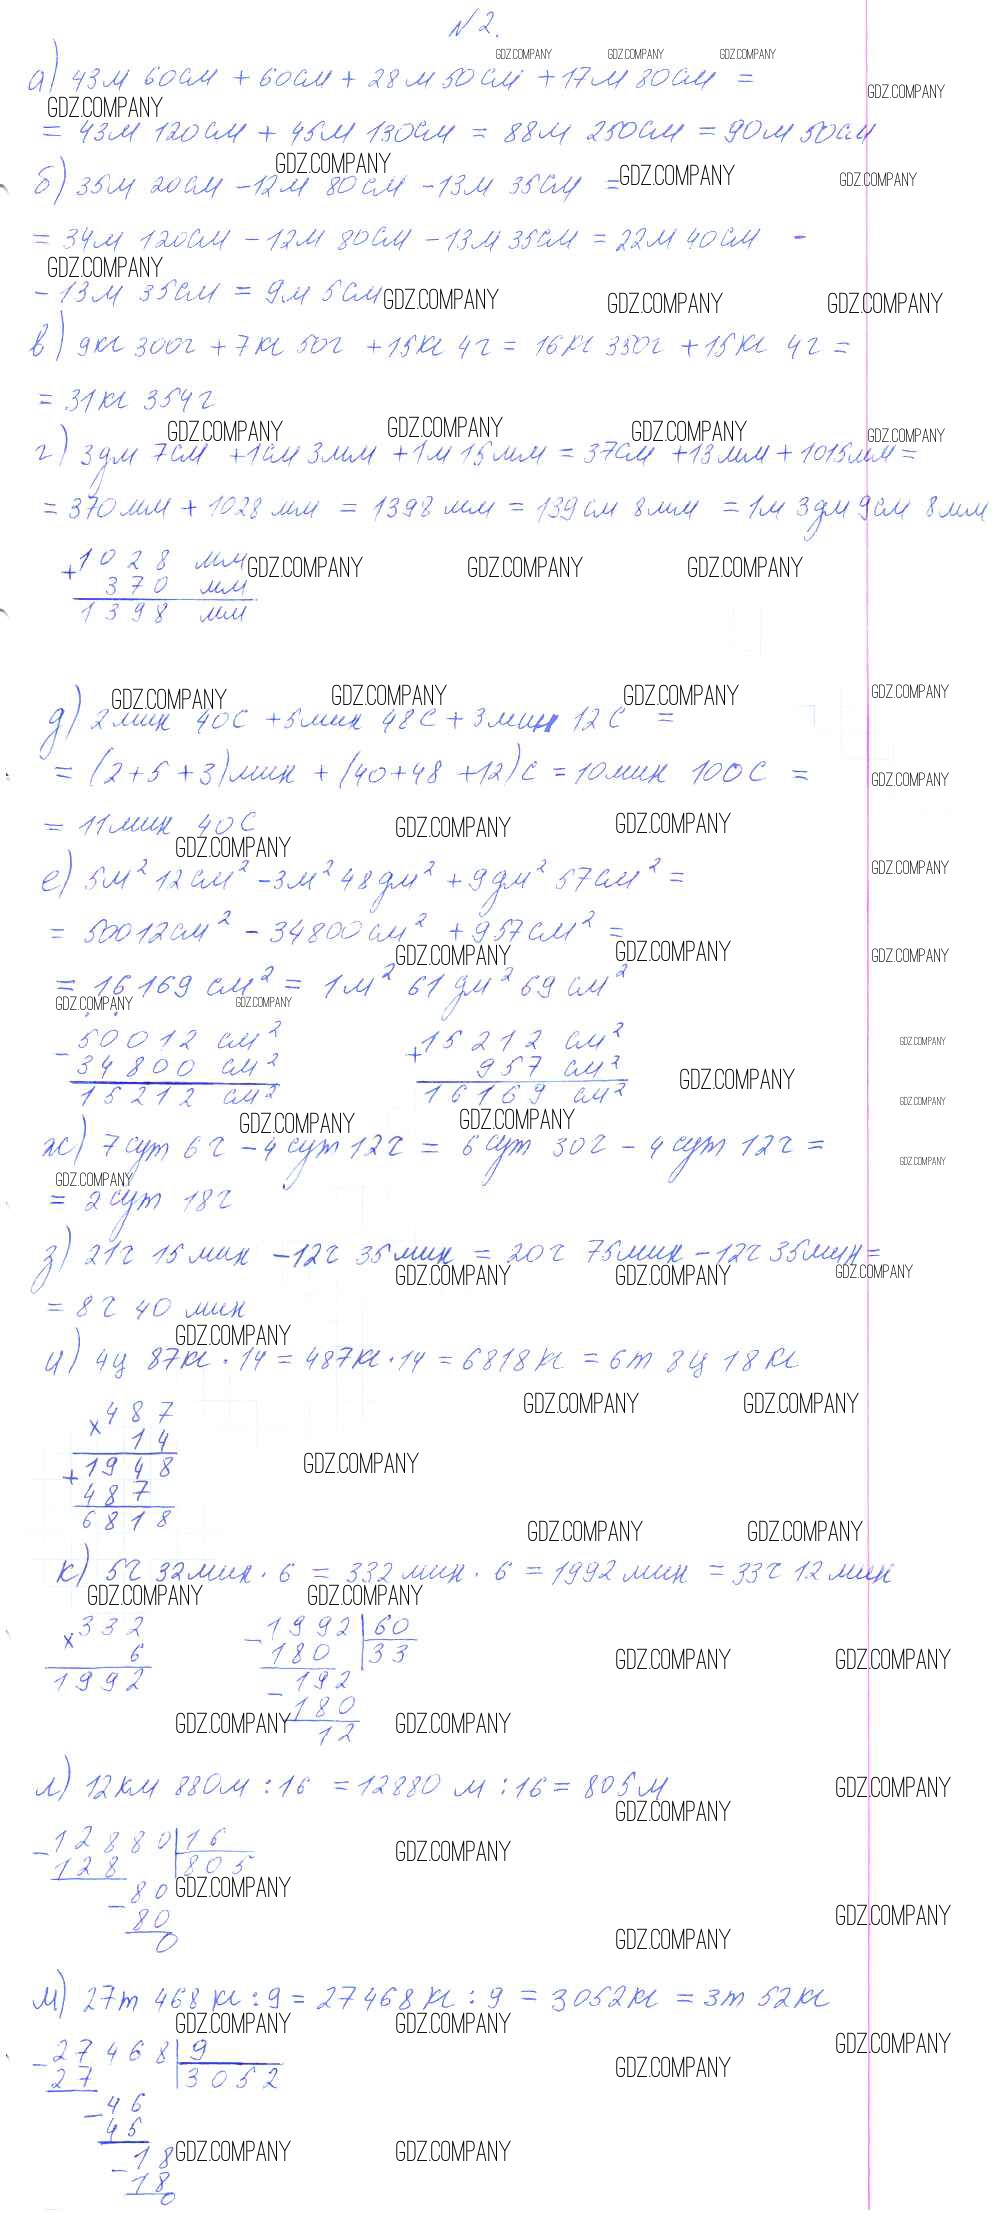 N 2.
а) 43м 60см + 60см + 28м 50см + 17м 80см =
= 43м 120см + 45м 130см = 88м 250см = 90м 50см
б) 35м 20см - 12м 80см - 13м 35см =
= 34м 120см - 12м 80см - 13м 35см = 22м 40см -
- 13м 35см = 9м 5см
в) 9кг 300г + 7кг 50г + 15кг 4г = 16кг 350г + 15кг 4г =
= 31кг 354г
г) 3дм 7см + 1см 3мм + 1м 15мм = 37см + 13мм + 1015мм =
= 370мм + 1028мм = 1398мм = 139см 8мм = 1м 3дм 9см 8мм
+ 1028 мм
370 мм
1398 мм
д) 2мин 40с + 5мин 48с + 3мин 12с =
= (2+5+3)мин + (40+48+12)с = 10мин 100с =
= 11мин 40с
е) 5м² 12см² - 3м² 48дм² + 9дм² 57см² =
= 50012см² - 34800см² + 957см² =
= 16169 см² = 1м² 61дм² 69см²
- 50012 см² + 15212 см²
34800 см² 957 см²
15212 см² 16169 см²
ж) 7сут 6ч - 4сут 12ч = 6сут 30ч - 4сут 12ч =
= 2сут 18ч
з) 21ч 15мин - 12ч 35мин = 20ч 75мин - 12ч 35мин =
= 8ч 40мин
и) 4ц 87кг · 14 = 487кг · 14 = 6818кг = 6т 8ц 18кг
х 487
14
+ 1948
487
6818
к) 5ч 32мин · 6 = 332мин · 6 = 1992мин = 33ч 12мин
х 332 - 1992 | 60
6 180 | 33
1992 - 192
180
12
л) 12км 880м : 16 = 12880 м : 16 = 805м
- 12880 | 16
128 | 805
- 80
80
0
м) 27т 468кг : 9 = 27468кг : 9 = 3052кг = 3т 52кг
- 27468 | 9
27 | 3052
- 46
45
- 18
18
0
GDZ.COMPANY